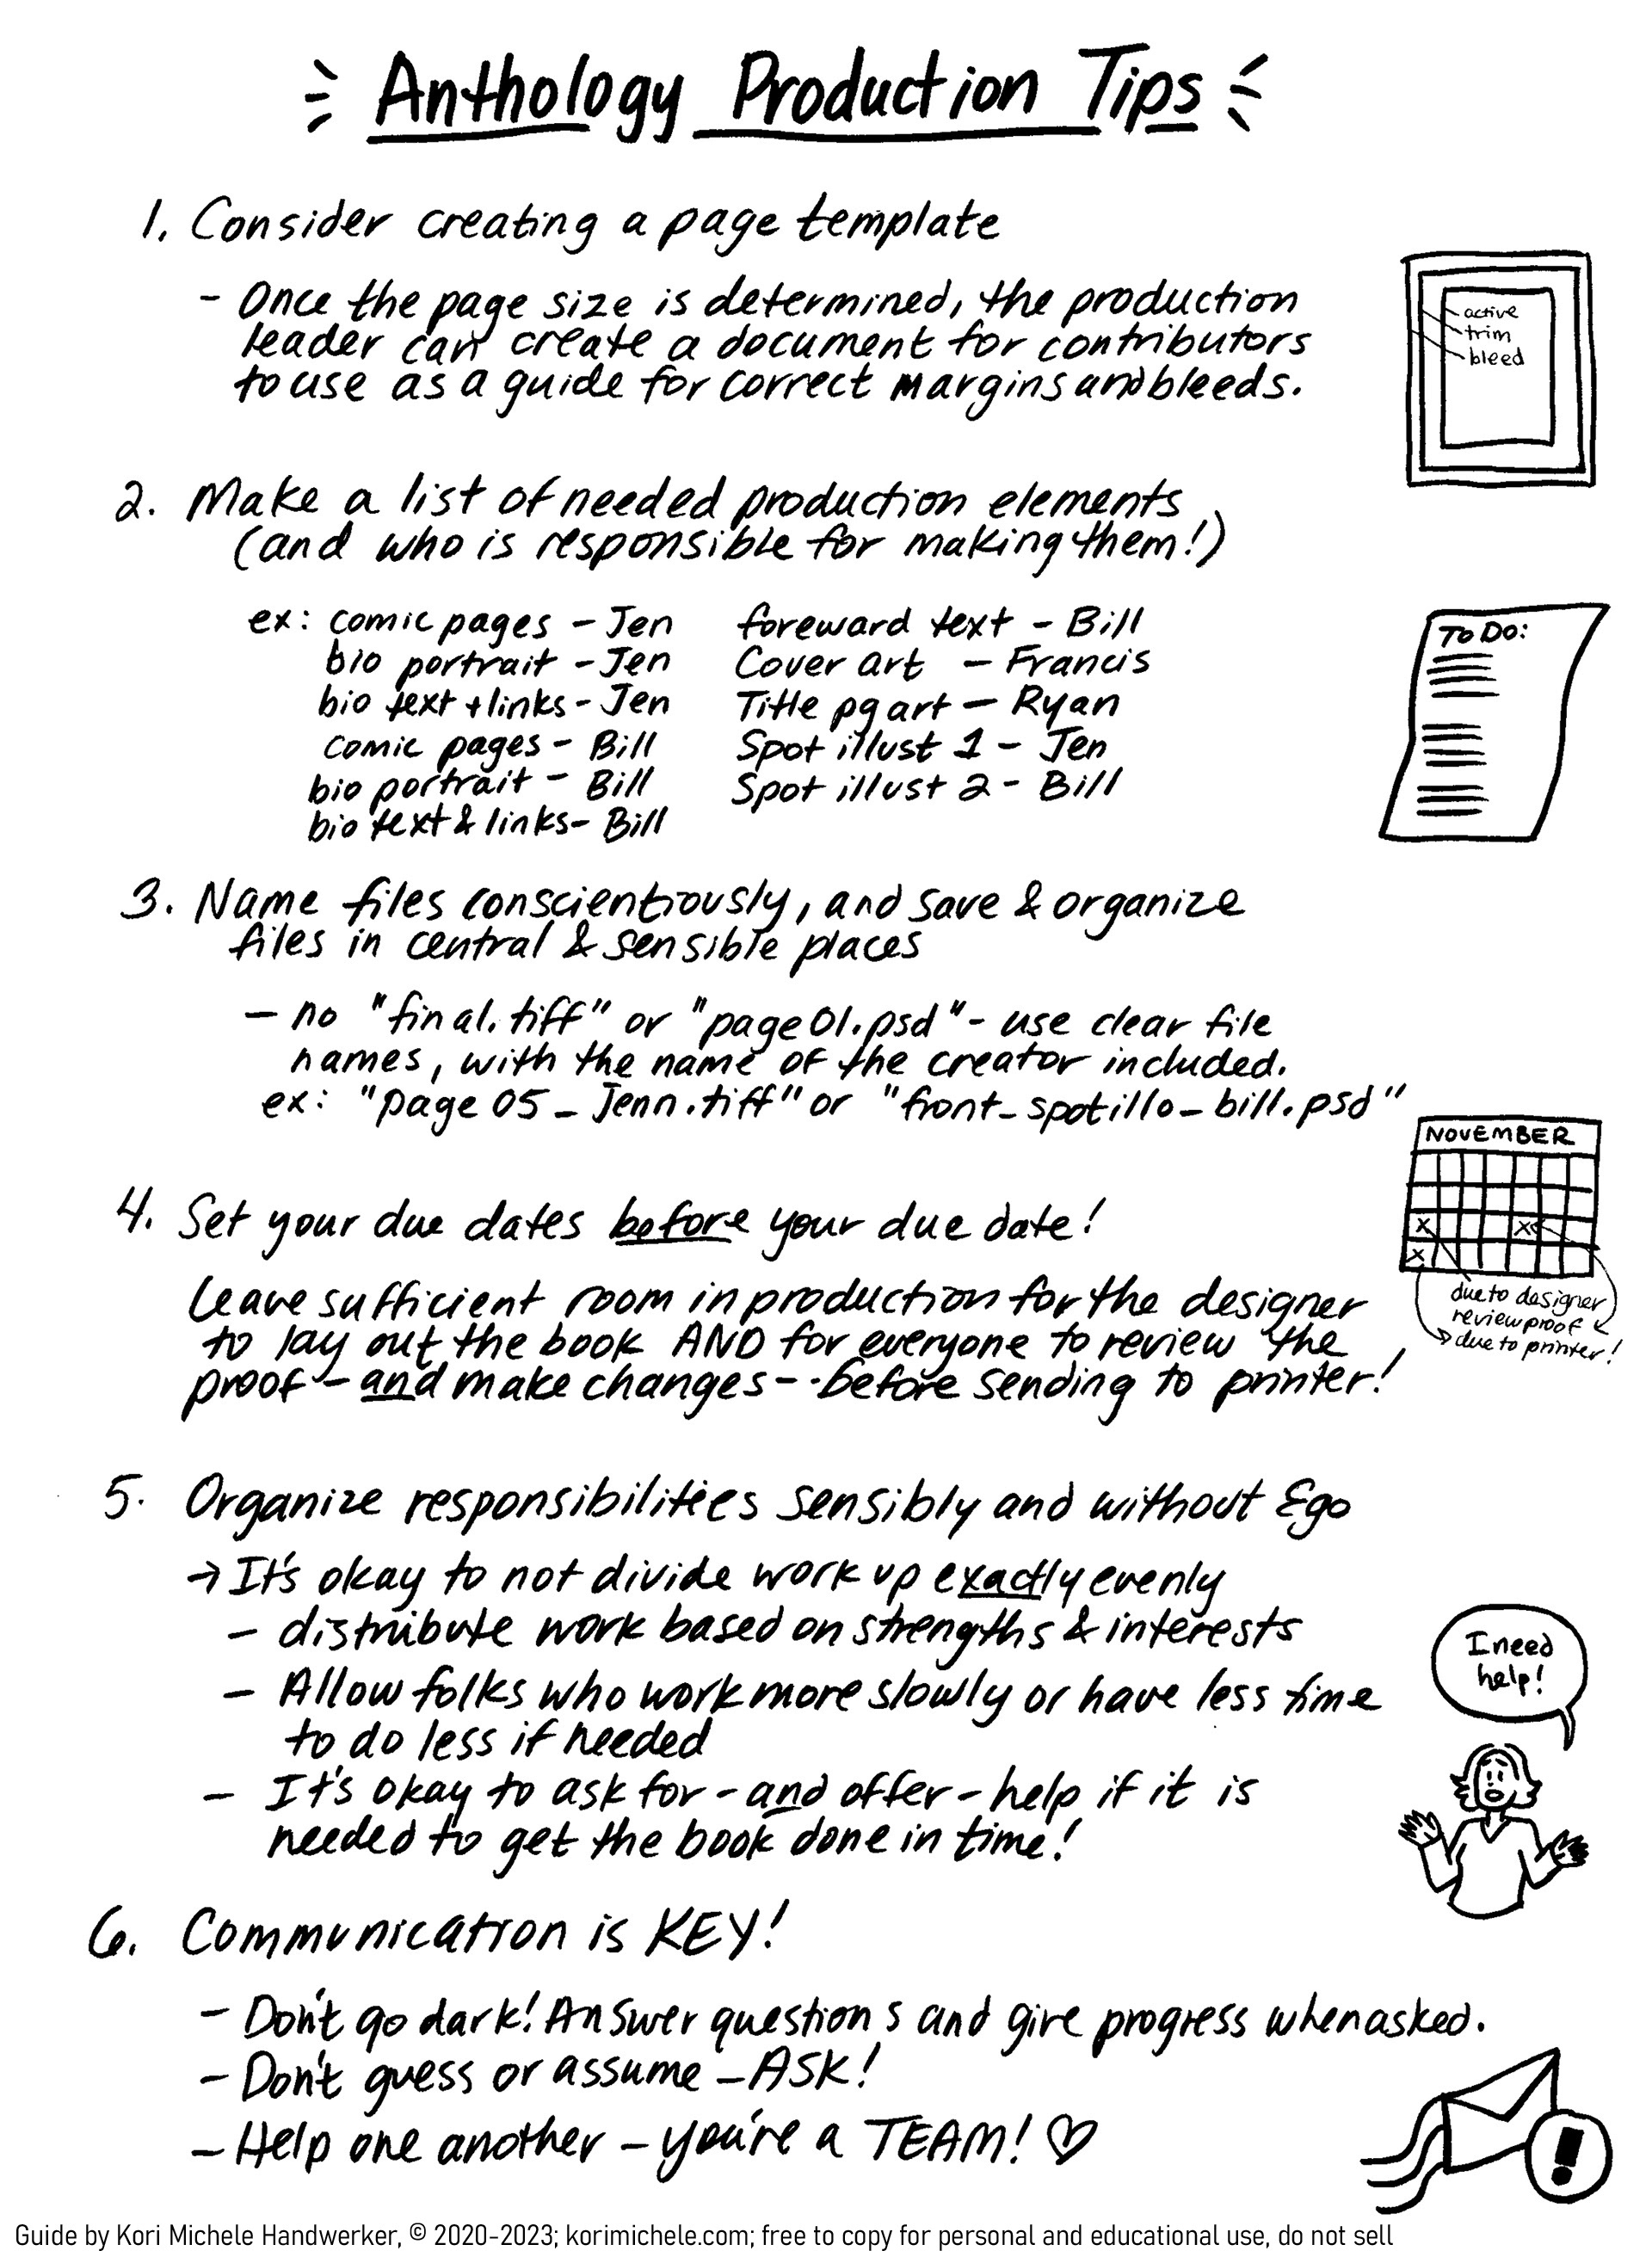 Anthology Production Tips
1. Consider creating a page template
- Once the page size is determined, the production
leader can create a document for contributors
to use as a guide for correct margins and bleeds.
active
trim
bleed
2. Make a list of needed production elements
(and who is responsible for making them!)
ex: comic pages - Jen
bio portrait - Jen
bio text + links - Jen
comic pages - Bill
bio portrait - Bill
bio text & links - Bill
foreward text - Bill
Cover art - Francis
Title pg art - Ryan
Spot illust 1 - Jen
Spot illust 2 - Bill
To Do:
3. Name files conscientiously, and save & organize
files in central & sensible places
- no "final.tiff" or "page01.psd" - use clear file
names, with the name of the creator included.
ex: "page 05_Jenn.tiff" or "front_spotillo_bill.psd"
4. Set your due dates before your due date!
Leave sufficient room in production for the designer
to lay out the book AND for everyone to review the
proof - and make changes -- before sending to printer!
NOVEMBER
x x
x
due to designer
review proof
due to printer!
5. Organize responsibilities sensibly and without Ego
→ It's okay to not divide work up exactly evenly
- distribute work based on strengths & interests
- Allow folks who work more slowly or have less time
to do less if needed
- It's okay to ask for - and offer - help if it is
needed to get the book done in time!
I need
help!
6. Communication is KEY!
- Don't go dark! Answer questions and give progress when asked.
- Don't guess or assume - ASK!
- Help one another - you're a TEAM! ♡
!
Guide by Kori Michele Handwerker, © 2020-2023; korimichele.com; free to copy for personal and educational use, do not sell